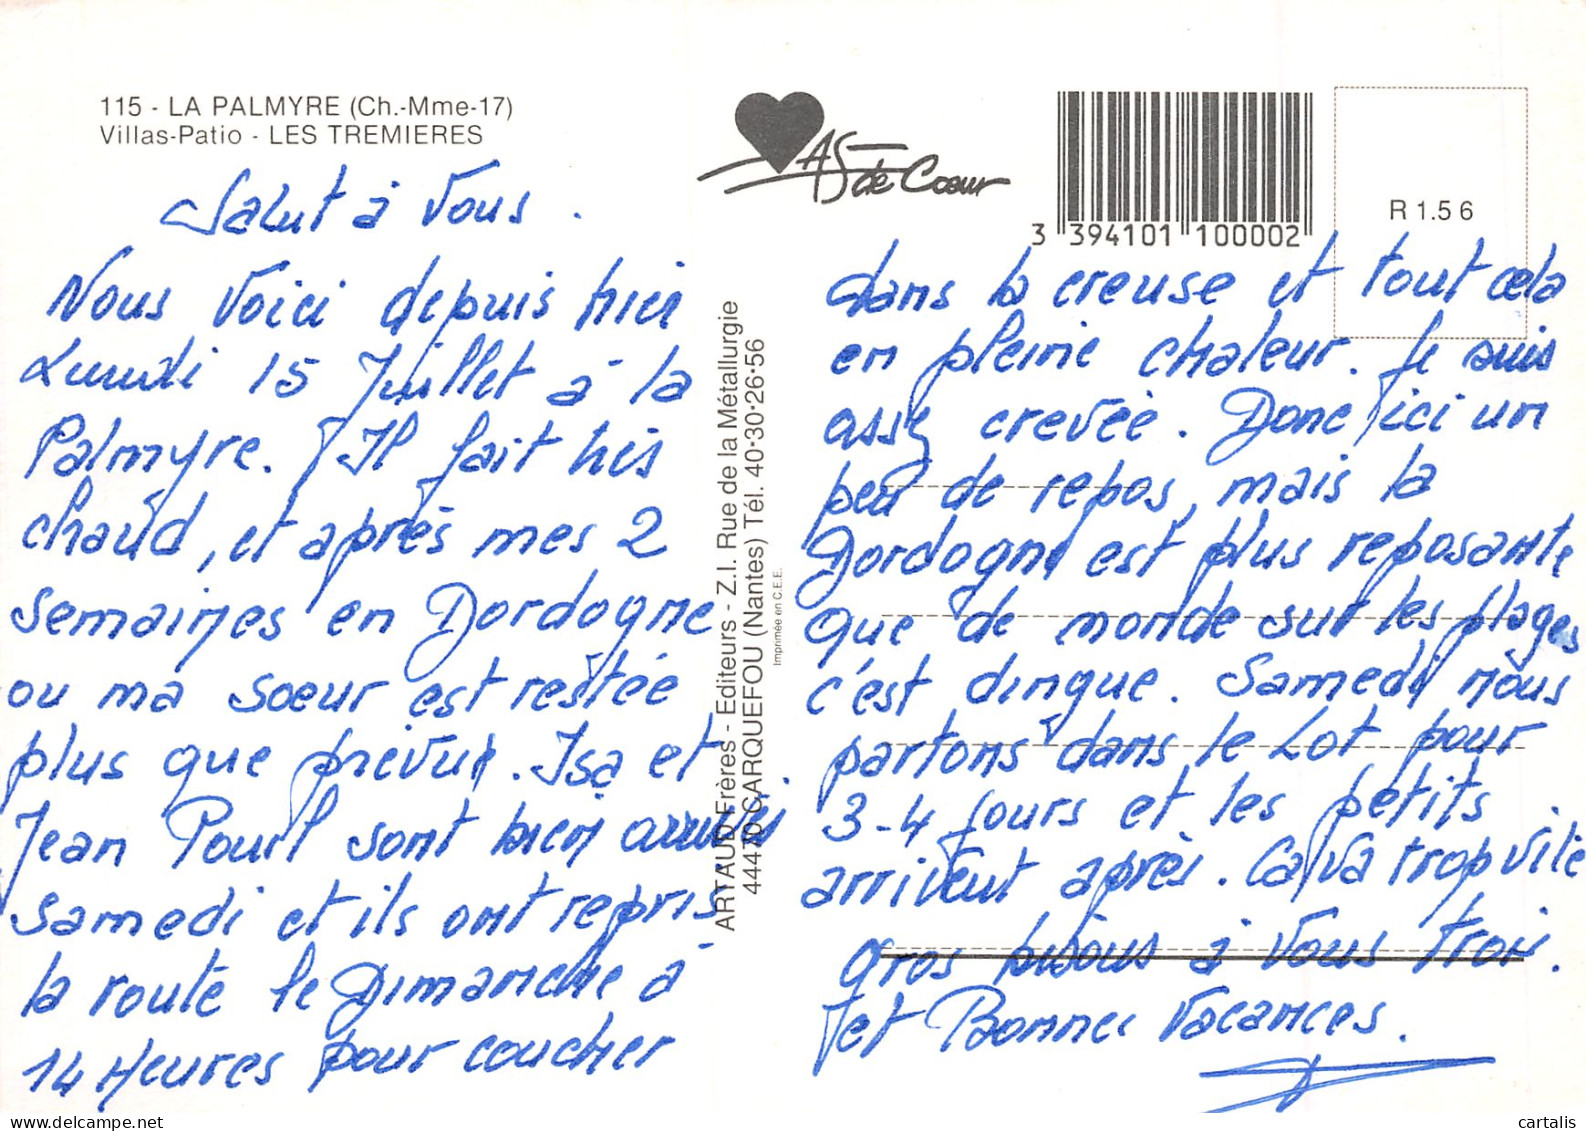 115 - LA PALMYRE (Ch.-Mme-17)
Villas-Patio - LES TREMIERES
Salut à vous.
Nous voici depuis hier
Lundi 15 Juillet à la
Palmyre. Il fait très
chaud, et après mes 2
semaines en Dordogne
ou ma soeur est restée
plus que prévue. Isa et
Jean Paul sont bien arrivés
Samedi et ils ont repris
la route le Dimanche à
14 Heures pour coucher
ARTAUD Frères - Editeurs - Z.I. Rue de la Métallurgie
44470 CARQUEFOU (Nantes) Tél. 40·30·26·56
Imprimée en C.E.E.
AS de Coeur
3 394101 100002
R 1.56
dans la creuse et tout cela
en pleine chaleur. Je suis
assez crevée. Donc ici un
peu de repos, mais la
Dordogne est plus reposante
que de monde sur les plages
c'est dingue. Samedi nous
partons dans le Lot pour
3-4 jours et les petits
arrivent après. Ca va trop vite
Gros bisous à vous trois.
et Bonnes vacances.
cartalis